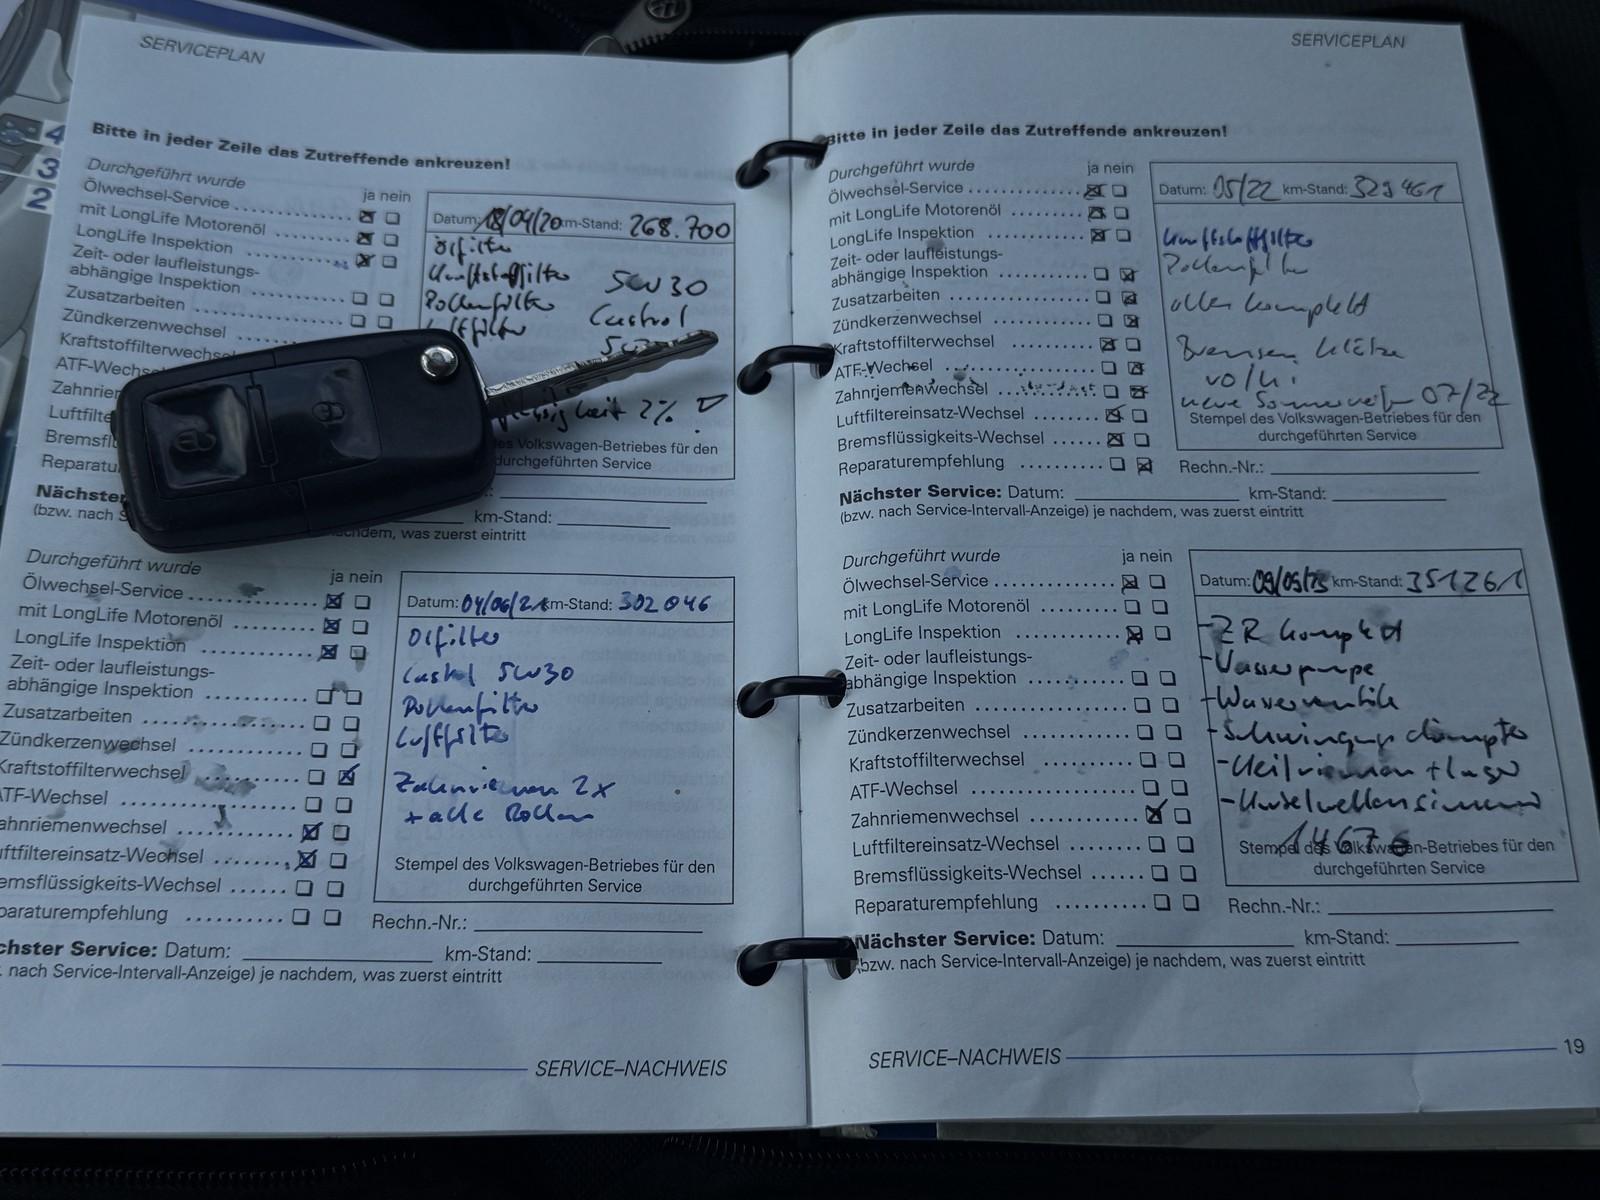 4
3
2
SERVICEPLAN
Bitte in jeder Zeile das Zutreffende ankreuzen!
Durchgeführt wurde
ja nein
Ölwechsel-Service
mit LongLife Motorenöl
LongLife Inspektion
Zeit- oder laufleistungs-
abhängige Inspektion
Zusatzarbeiten
Zündkerzenwechsel
Kraftstofffilterwechsel
ATF-Wechs
Zahnrie
Luftfilte
Bremsfl
Reparatu
Datum: /04/20 km-Stand: 268.700
Ölfilter
Kraftstoffilter 5W30
Pollenfilter Castrol
Luftfilter
2%
es Volkswagen-Betriebes für den
durchgeführten Service
Nächster
(bzw. nach S
km-Stand:
achdem, was zuerst eintritt
Durchgeführt wurde
ja nein
Ölwechsel-Service
mit LongLife Motorenöl
LongLife Inspektion
Zeit- oder laufleistungs-
abhängige Inspektion
Zusatzarbeiten
Zündkerzenwechsel
Kraftstoffilterwechsel
ATF-Wechsel
ahnriemenwechsel
uftfiltereinsatz-Wechsel
emsflüssigkeits-Wechsel
paraturempfehlung
Datum: 04/06/21 km-Stand: 302046
Ölfilter
Castrol 5W30
Pollenfilter
Luftfilter
Zahnriemen 2x
+ alle Rollen
Stempel des Volkswagen-Betriebes für den
durchgeführten Service
Rechn.-Nr.:
chster Service: Datum: km-Stand:
. nach Service-Intervall-Anzeige) je nachdem, was zuerst eintritt
SERVICE–NACHWEIS
SERVICEPLAN
Bitte in jeder Zeile das Zutreffende ankreuzen!
Durchgeführt wurde
ja nein
Ölwechsel-Service
mit LongLife Motorenöl
LongLife Inspektion
Zeit- oder laufleistungs-
abhängige Inspektion
Zusatzarbeiten
Zündkerzenwechsel
Kraftstoffilterwechsel
ATF-Wechsel
Zahnriemenwechsel
Luftfiltereinsatz-Wechsel
Bremsflüssigkeits-Wechsel
Reparaturempfehlung
Datum: 05/22 km-Stand: 329461
Kraftstoffilter
Pollenfilter
alles komplett
Bremsen Klötze
vo/hi
neue Sommerreifen 07/22
Stempel des Volkswagen-Betriebes für den
durchgeführten Service
Rechn.-Nr.:
Nächster Service: Datum: km-Stand:
(bzw. nach Service-Intervall-Anzeige) je nachdem, was zuerst eintritt
Durchgeführt wurde
ja nein
Ölwechsel-Service
mit LongLife Motorenöl
LongLife Inspektion
Zeit- oder laufleistungs-
abhängige Inspektion
Zusatzarbeiten
Zündkerzenwechsel
Kraftstoffilterwechsel
ATF-Wechsel
Zahnriemenwechsel
Luftfiltereinsatz-Wechsel
Bremsflüssigkeits-Wechsel
Reparaturempfehlung
Datum: km-Stand: 351261
- ZR komplett
- Wasserpumpe
- Schwingungsdämpfer
- Keilriemen + Lager
- Kurbelwellensimmer
1467€
Stempel des Volkswagen-Betriebes für den
durchgeführten Service
Rechn.-Nr.:
Nächster Service: Datum: km-Stand:
(bzw. nach Service-Intervall-Anzeige) je nachdem, was zuerst eintritt
SERVICE–NACHWEIS
19